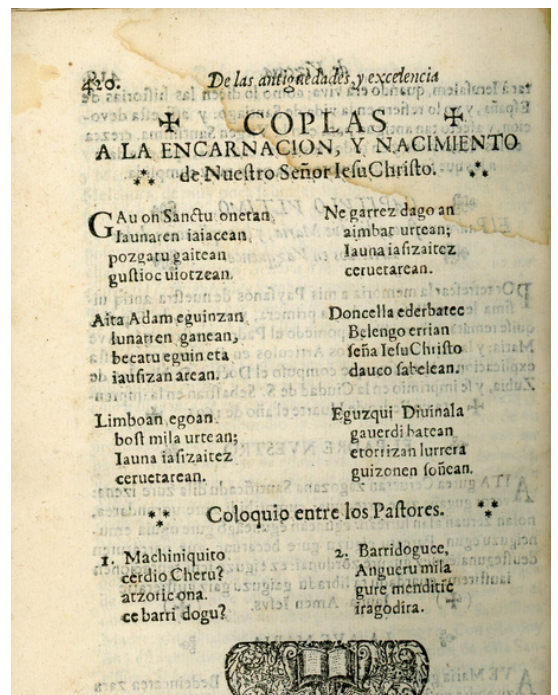 420. De las antiguedades, y excelencia
COPLAS
A LA ENCARNACION, Y NACIMIENTO
de Nuestro Señor IesuChristo.
GAu on Sanctu onetan
Iaunaren iaiacean
pozgatu gaitean
gustioc uiotzean.
Aita Adam eguinzan
lunarren ganean,
becatu eguin eta
iausizan arean.
Limboan egoan
bost mila urtean;
Iauna iasizaitez
ceruetarean.
Ne garrez dago an
aimbat urtean;
Iauna iasizaitez
ceruetarean.
Doncella ederbatec
Belengo errian
seña IesuChristo
dauco sabelean.
Eguzqui Diuinala
gauerdi batean
etorrizan lurrera
guizonen soñean.
Coloquio entre los Pastores.
1. Machiniquito
cerdio Cheru?
atzoric ona.
ce barri dogu?
2. Barridoguce,
Angueru mila
gure menditic
iragodira.